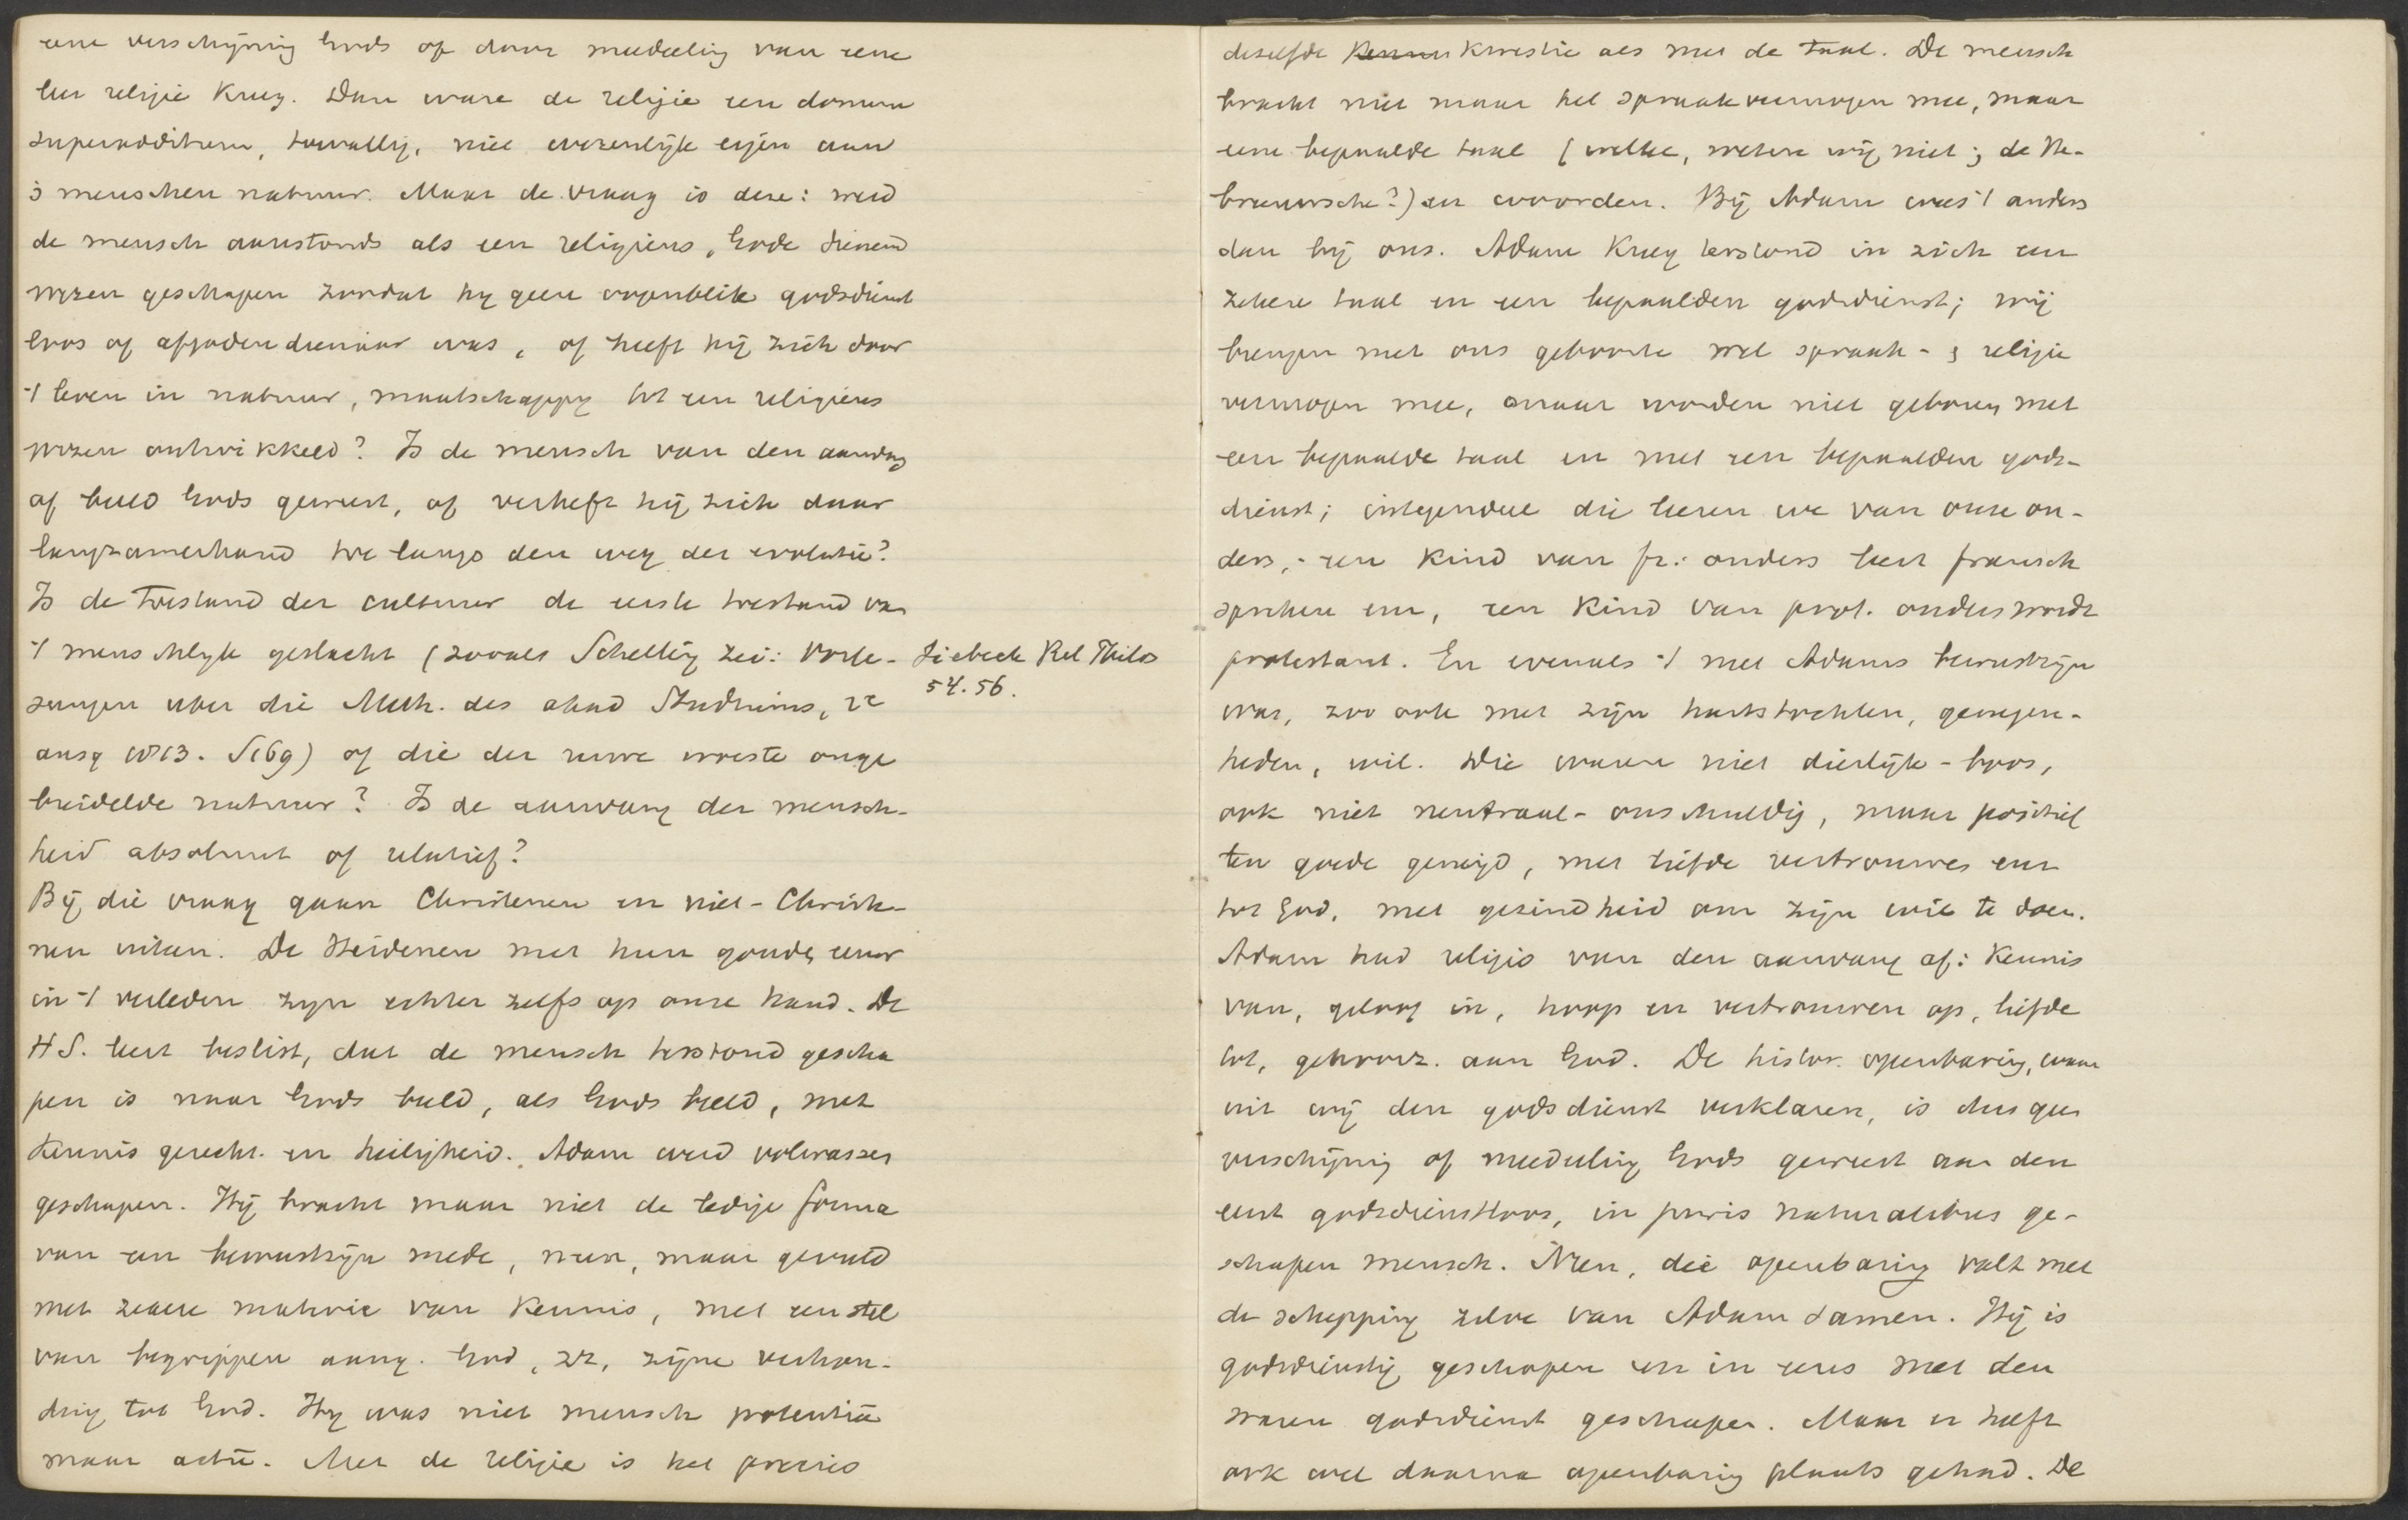 eene verschijning Gods of door mededeeling van eene
leer religie kreeg. Dan ware de religie een donum
superadditum, toevallig, niet wezenlijk eigen aan
's menschen natuur. Maar de vraag is deze: werd
de mensch aanstonds als een religieus, Gode dienend
wezen geschapen zoodat hy geen oogenblik godsdienst
loos of afgodendienaar was, of heeft hij zich door
't leven in natuur, maatschappy tot een religieus
wezen ontwikkeld? Is de mensch van den aanvang
af beeld Gods geweest, of verheft hij zich daar
langzamerhand toe langs den weg der evolutie?
Is de toestand der cultuur de eerste toestand van
't menschlyk geslacht (zooals Schelling zei: Vorle-
sungen uber die Meth. des akad Studiums, 2e
ausg 1813. S169) of die der ruwe woeste onge
breidelde natuur? Is de aanvang der mensch-
heid absoluut of relatief?
Bij die vraag gaan Christenen en niet-Christe-
nen uiteen. De Heidenen met hun gouden eeuw
in 't verleden zyn echter zelfs op onze hand. De
H S. leert beslist, dat de mensch terstond gescha
pen is naar Gods beeld, als Gods beeld, met
kennis gerecht. en heiligheid. Adam werd volwassen
geschapen. Hij bracht maar niet de ledige forma
van een bewustzijn mede, neen, maar gevuld
met zekere materie van kennis, met een stel
van begrippen aang. God, zz, zijne verhou-
ding tot God. Hy was niet mensch potentiâ
maar actû. Met de religie is het precies
Siebeck Rel Philos
54. 56.
dezelfde kwestie als met de taal. De mensch
bracht niet maar het spraakvermogen mee, maar
eene bepaalde taal (welke, weten wij niet; de He-
breeuwsche?) en woorden. Bij Adam was 't anders
dan bij ons. Adam kreeg terstond in zich een
zekere taal en een bepaalden godsdienst; wij
brengen met ons geboorte wel spraak- & religie
vermogen mee, maar worden niet geboren met
een bepaalde taal en met een bepaalden gods-
dienst; integendeel die leeren we van onze ou-
ders, - een kind van fr: ouders leert fransch
spreken enz, een kind van prot. ouders wordt
protestant. En evenals 't met Adams bewustzijn
was, zoo ook met zijn hartstochten, genegen-
heden, wil. Die waren niet dierlijk-boos,
ook niet neutraal-onschuldig, maar positief
ten goede geneigd, met liefde vertrouwen enz
tot God, met gezindheid om zijn wil te doen.
Adam had religie van den aanvang af: kennis
van, geloof in, hoop en vertrouwen op, liefde
tot, gehoorz. aan God. De histor. openbaring, waar
uit wij den godsdienst verklaren, is dus geen
verschijning of mededeeling Gods geweest aan den
eerst godsdienstloos, in puris naturalibus ge-
schapen mensch. Neen, die openbaring valt met
de schepping zelve van Adam samen. Hij is
godsdienstig geschapen en in eens met den
waren godsdienst geschapen. Maar er heeft
ook wel daarna openbaring plaats gehad. De